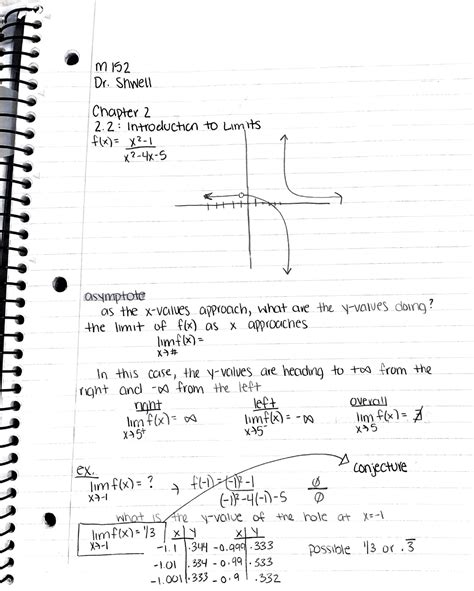 M 152
Dr. Shwell
Chapter 2
2.2: Introduction to Limits
f(x)= x²-1 / x²-4x-5
asymptote
as the x-values approach, what are the y-values doing?
the limit of f(x) as x approaches
lim f(x)=
x→#
In this case, the y-values are heading to +∞ from the
right and -∞ from the left
right left overall
lim f(x)= ∞ lim f(x)= -∞ lim f(x)= ∄
x→5⁺ x→5⁻ x→5
ex.
lim f(x)= ? → f(-1)= (-1)²-1 / (-1)²-4(-1)-5 0/0 conjecture
x→-1
what is the y-value of the hole at x=-1
lim f(x)= 1/3
x→-1
x y x y
-1.1 .344 -0.999 .333
-1.01 .334 -0.99 .533 possible 1/3 or .3̅
-1.001 .333 -0.9 .332